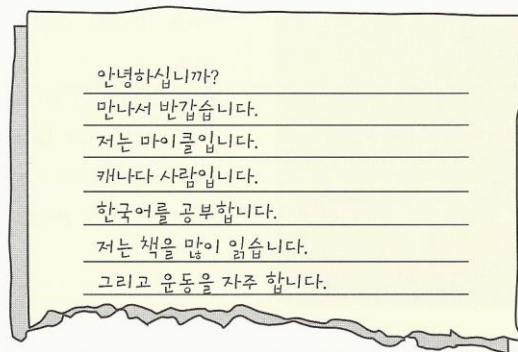 안녕하십니까?
만나서 반갑습니다.
저는 마이클입니다.
캐나다 사람입니다.
한국어를 공부합니다.
저는 책을 많이 읽습니다.
그리고 운동을 자주 합니다.